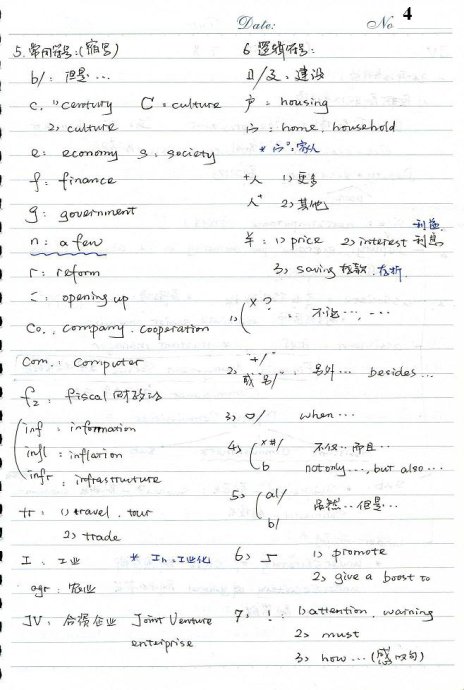 4
Date: No
5. 常用符号:(缩略)
b/: 但是…
c. 1) century C: culture
2) culture
e: economy s: society
f: finance
g: government
n: a few
r: reform
opening up
Co.. company. cooperation
Com.: computer
f2: fiscal 财政的
inf: information
infl: inflation
infr: infrastructure
tr: 1) travel. tour
2) trade
I: 工业 * In: 工业化
agr: 农业
JV: 合资企业 Joint Venture
enterprise
6 逻辑符号:
建设
户: housing
宀: home, household
* 宀°: 家人
+人 1) 更多
人+ 2) 其他
利益
羊: 1) price 2) interest 利息
3) saving 存款.存折.
1) ( x ? : 不过…, …
2. "+/"
或"另/" : 另外… besides…
3) when…
4) ( x#/ 不仅…而且…
b not only…, but also…
5) ( al/ 虽然…但是…
b/
6) 1) promote
2) give a boost to
7. !: 1) attention. warning
2) must
3) how… (感叹句)